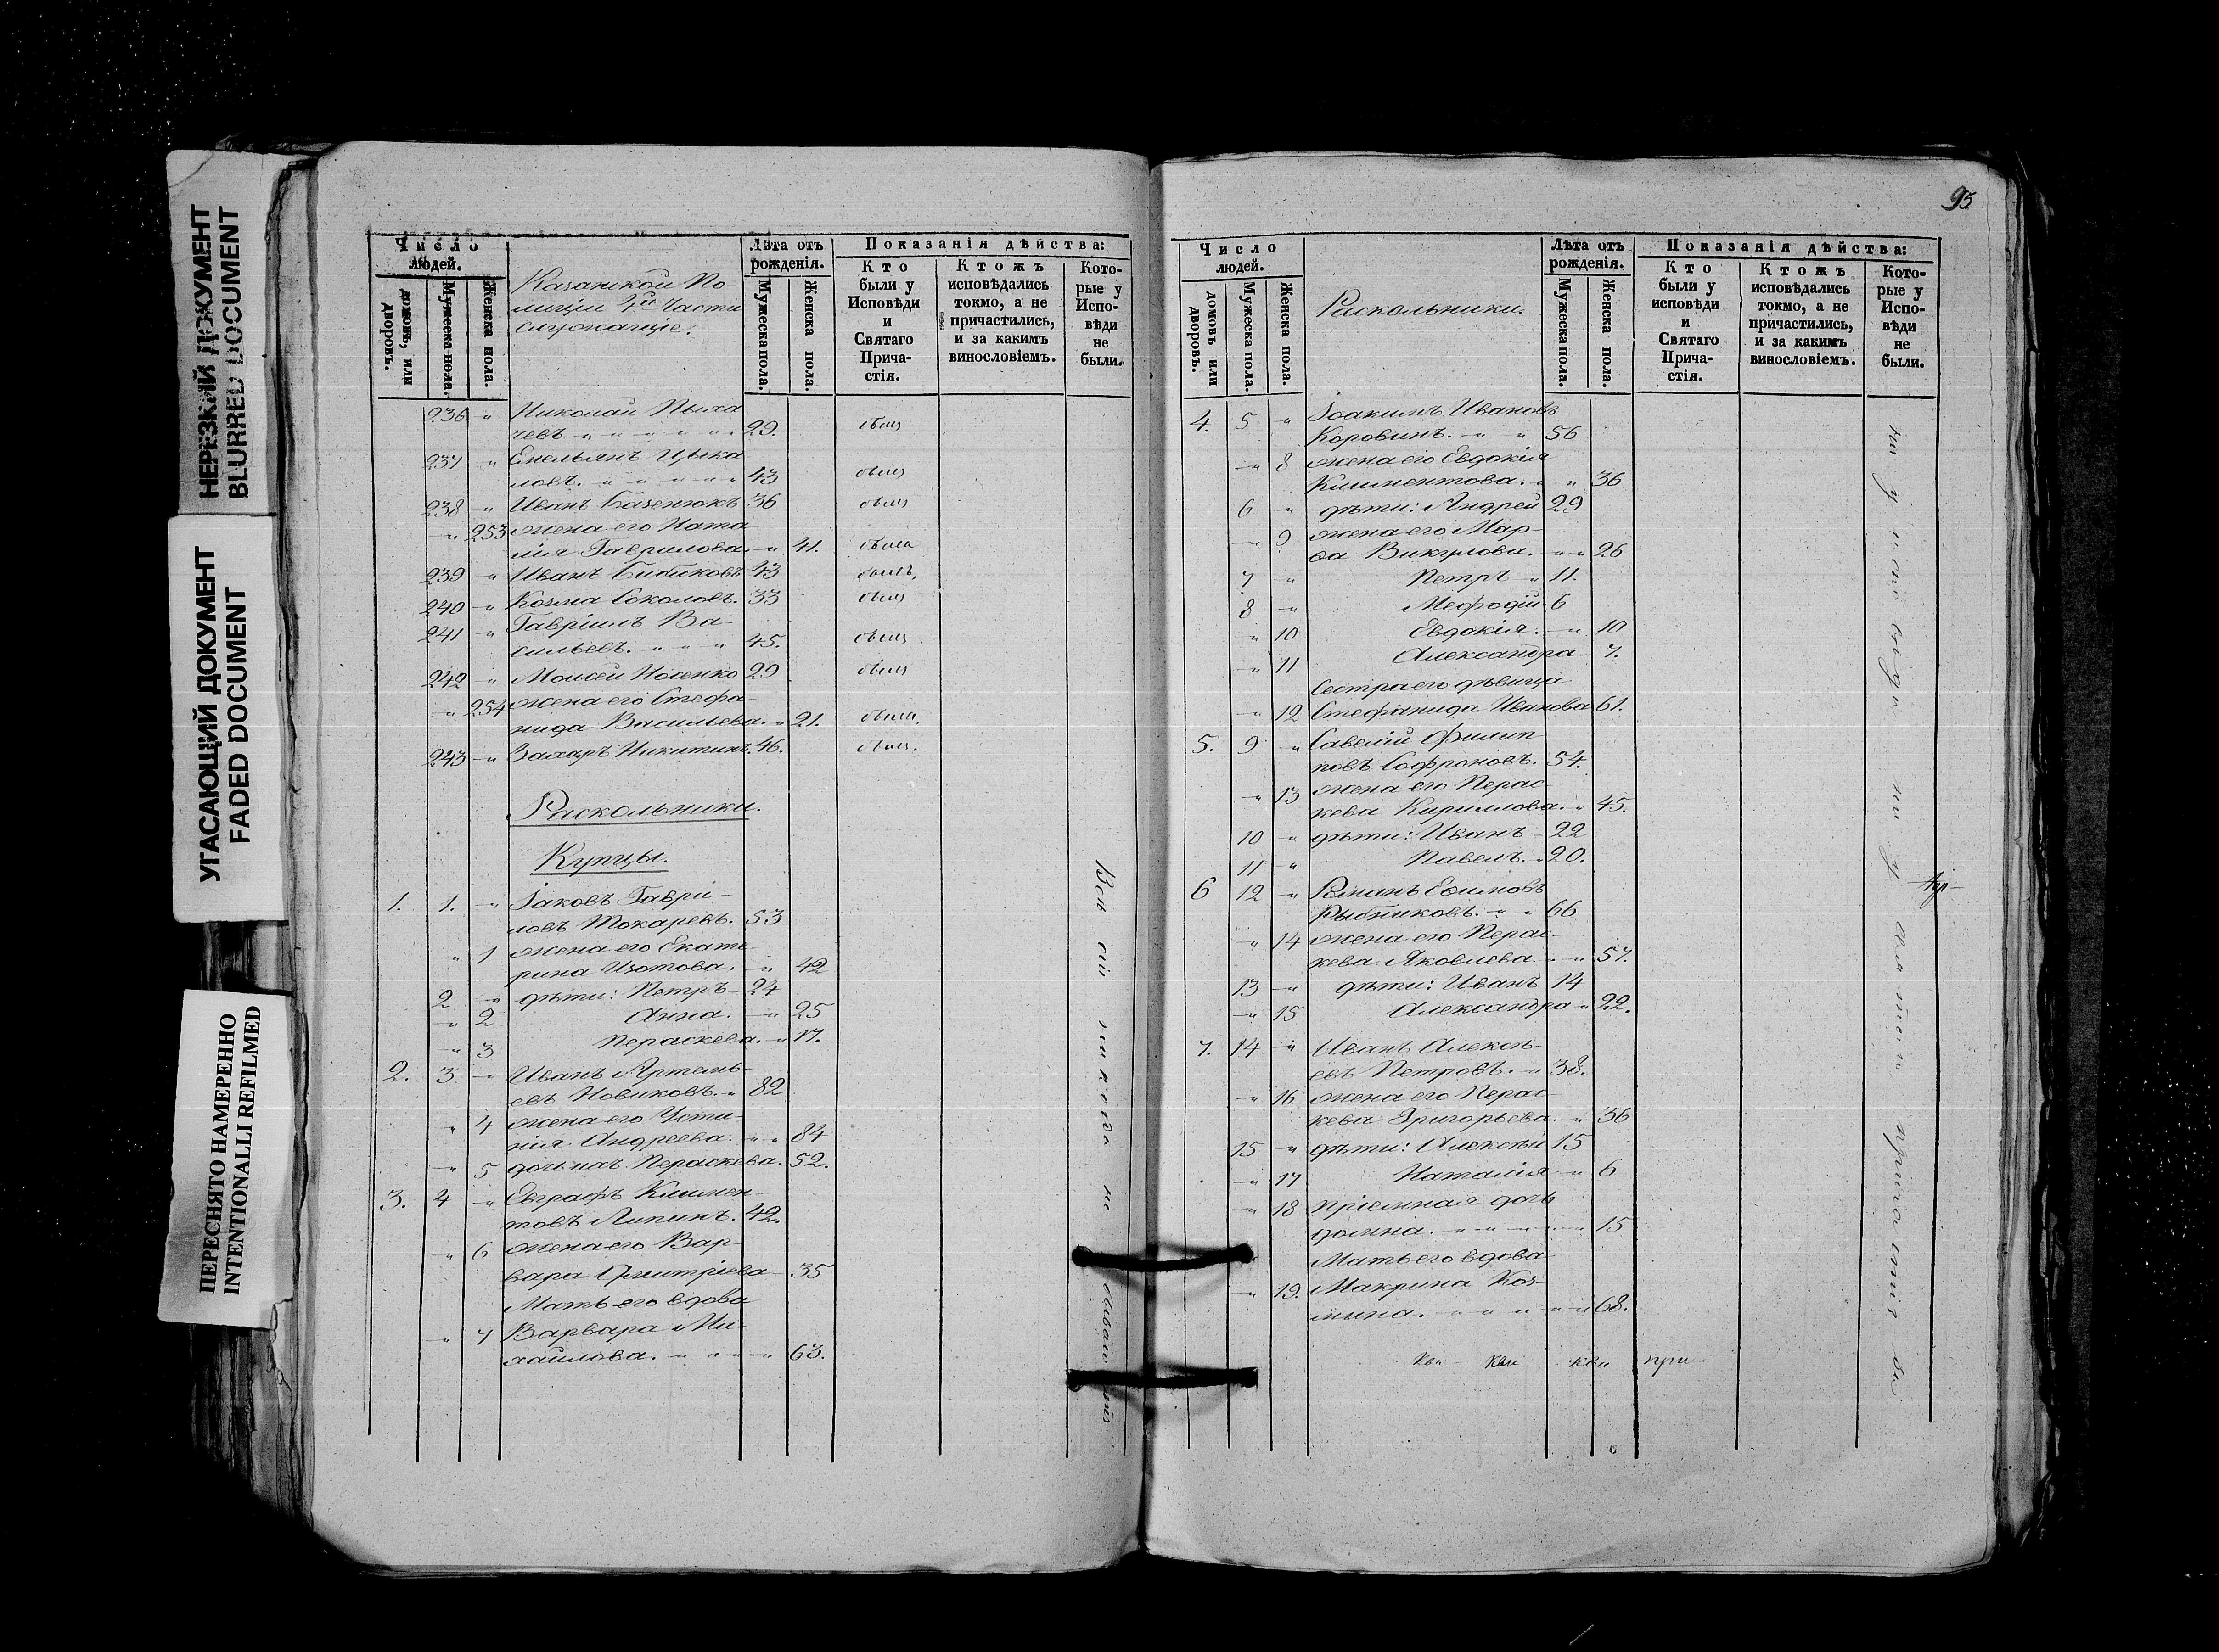 НЕРЕЗКИЙ ДОКУМЕНТ
BLURRED DOCUMENT
УГАСАЮЩИЙ ДОКУМЕНТ
FADED DOCUMENT
ПЕРЕСНЯТО НАМЕРЕННО
INTENTIONALLI REFILMED
Число людей.
домовъ, или дворовъ.
Мужеска пола.
Женска пола.
Казанской По-
лиціи 4й Части
служащіе.
Лѣта отъ рожденія.
Мужеска пола.
Женска пола.
Показанія дѣйства:
Кто были у Исповѣди и Святаго Прича-стія.
Ктожъ исповѣдались токмо, а не причастились, и за какимъ винословіемъ.
Кото-рые у Испо-вѣди не были.
236 " Николай Пыха
чевъ " " " " " 29. былъ
237 " Емельянъ Цыка
ловъ. " " " " " 43 былъ
238 " Иванъ Базенюкъ 36 былъ
" 253 жена его Ната-
лія Гаврилова. " 41. была
239 " Иванъ Бибиковъ 43 былъ,
240 " Козма Соколовъ. 33 былъ
241 " Гавріилъ Ва-
сильевъ. " " " 45. былъ
242 " Моисей Носенко 29 былъ
" 254 жена его Стефа-
нида Васильева. " 21. была.
243 " Захаръ Никитинъ. 46. былъ.
Раскольники.
Купцы.
1. 1. " Іаковъ Гаври-
ловъ Токаревъ. 53
" 1 жена его Екате-
рина Изотова. " 42
2 " дѣти: Петръ 24
" 2 Анна. " 25
" 3 Пераскева. " 17.
2. 3 " Иванъ Артемь-
евъ Новиковъ. " 82
" 4 жена его Усти-
нія Андреева. " " 84
" 5 дочь ихъ Пераскева. 52.
3. 4 " Евграфъ Климен-
товъ Липинъ. 42.
" 6 жена его Вар-
вара Дмитріева 35
Мать его вдова
" 7 Варвара Ми-
хайлова. " " " " 63.
Всѣ сіи никогда не
95
Число людей.
домовъ или дворовъ.
Мужеска пола.
Женска пола.
Раскольники.
Лѣта отъ рожденія.
Мужеска пола.
Женска пола.
Показанія дѣйства:
Кто были у исповѣди и Святаго Прича-стія.
Ктожъ исповѣдались токмо, а не причастились, и за какимъ винословіемъ.
Кото-рые у Испо-вѣди не были.
4. 5 " Іоакимъ Ивановъ
Коровинъ. " " 56
" 8 жена его Евдокія
Климентова. " " 36
6 " дѣти: Андрей 29
" 9 жена его Мар-
ѳа Викулова. " " 26
7 " Петръ " 11.
8 " Мефодій 6
" 10 Евдокія. " 10
" 11 Александра 7.
Сестра его дѣвица
" 12 Стефанида Иванова 61.
5. 9 " Савелій Филип-
повъ Софроновъ. 54.
" 13 жена его Перас-
кева Кириллова. " 45.
10 " дѣти: Иванъ 22
11 " Павелъ. " 20.
6 12 " Романъ Ефимовъ
Рыбниковъ. " " 66
" 14 жена его Перас-
кева Яковлева. " " 57.
13 " дѣти: Иванъ 14
" 15 Александра " 22.
7. 14 " Иванъ Алексѣ-
евъ Петровъ. " 38.
" 16 жена его Перас-
кева Григорьева. " 36
15 " дѣти: Алексѣй 15
" 17 Наталія " 6
" 18 пріемная дочь
Домна. " " " " " 15
Мать его вдова
" 19. Макрина Коз-
мина. " " " " " 68.
ни у исповѣди ни у святаго причастія